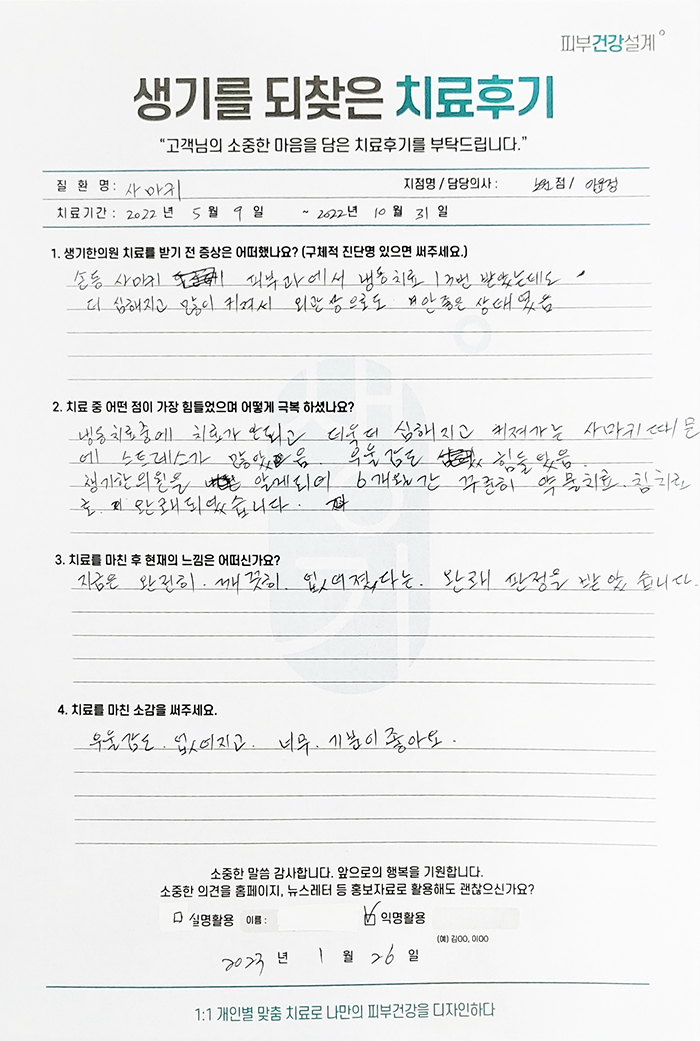 피부건강설계
생기를 되찾은 치료후기
“고객님의 소중한 마음을 담은 치료후기를 부탁드립니다.”
질 환 명 : 사마귀 지점명 / 담당의사 : 노원 점 / 이윤정
치료기간 : 2022 년 5 월 9 일 ~ 2022 년 10 월 31 일
1. 생기한의원 치료를 받기 전 증상은 어떠했나요? (구체적 진단명 있으면 써주세요.)
손등 사마귀 피부과에서 냉동치료 13번 받았는데도
더 심해지고 많이 커져서 외관상으로도 안좋은 상태였음
2. 치료 중 어떤 점이 가장 힘들었으며 어떻게 극복 하셨나요?
냉동치료중에 치료가 안되고 더욱더 심해지고 커져가는 사마귀 때문
에 스트레스가 많았음. 우울감도 힘들었음.
생기한의원을 알게되어 6개월간 꾸준히 약물치료. 침치료
로. 완쾌되었습니다.
3. 치료를 마친 후 현재의 느낌은 어떠신가요?
지금은 완전히. 깨끗히. 없어졌다는. 완쾌 판정을 받았습니다.
4. 치료를 마친 소감을 써주세요.
우울감도. 없어지고. 너무. 기분이 좋아요.
소중한 말씀 감사합니다. 앞으로의 행복을 기원합니다.
소중한 의견을 홈페이지, 뉴스레터 등 홍보자료로 활용해도 괜찮으신가요?
실명활용 이름 : 익명활용
(예) 김OO, 이OO
2023 년 1 월 26 일
1:1 개인별 맞춤 치료로 나만의 피부건강을 디자인하다
생기